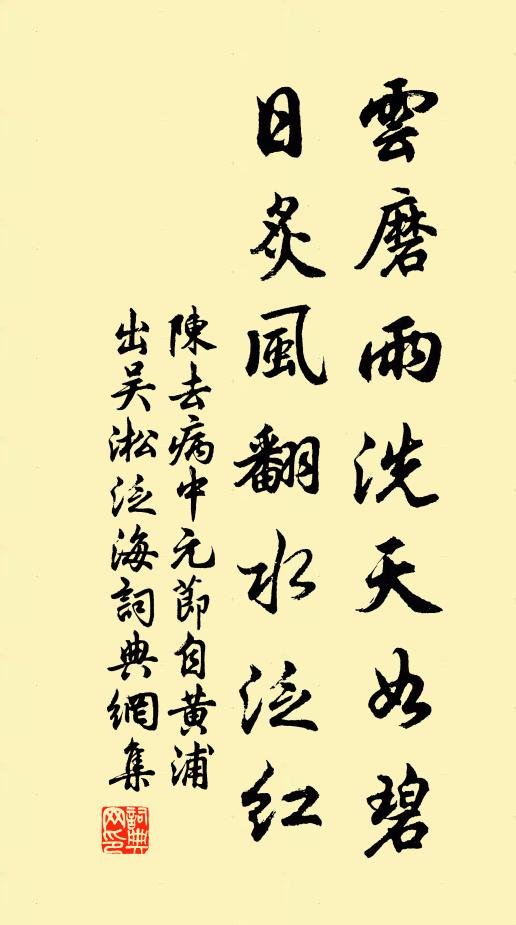 雲磨雨洗天如碧
日炙風翻水泛红
陳去病中元節自黃浦
出吴淞泛海詞典網集
詞典
网印